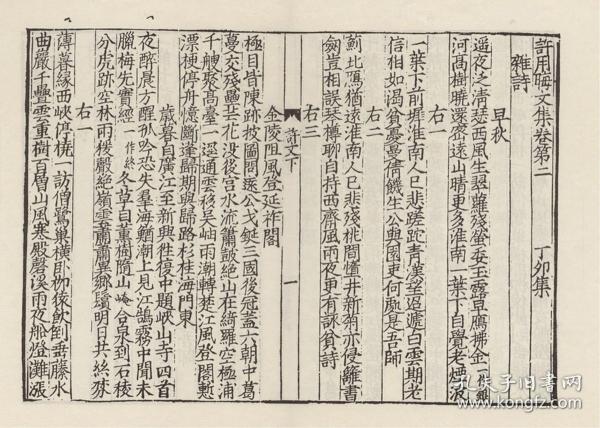 許用晦文集卷第二 丁卯集
雜詩
早秋
遥夜泛清瑟西風生翠蘿殘螢委玉露早鴈拂金一作銀
河高樹曉還密遠山晴更多淮南一葉下自覺老煙波
右一
一葉下前墀淮南人已悲蹉跎青漢望迢遞白雲期老
信相如渴貧憂曼倩饑生公與園吏何處是吾師
右二
薊北鴈猶遠淮南人已悲殘桃間墮井新菊亦侵籬書
劔豈相誤琴樽聊自持西齋風雨夜更有詠貧詩
右三
許文下
一
金陵阻風登延祚閣
極目皆陳跡披圖問遠公戈鋋三國後冠蓋六朝中葛
蔓交殘壘芒花没後宮水流簫鼓絶山在綺羅空極浦
千艘聚高臺一逕通雲移吳岫雨潮轉楚江風登閣慙
漂梗停舟憶斷蓬歸期與歸路杉桂海門東
歲暮自廣江至新興往復中題峽山寺四首
夜醉晨方醒孤吟恐失羣海鰌潮上見江鵠霧中聞未
臘梅先實經一作終冬草自薰樹隨山崦合泉到石稜
分虎跡空林雨猿聲絶嶺雲蕭蕭異鄉鬢明日共絲棼
右一
薄暮緣西峽停橈一訪僧鷺巢橫卧柳猿飲倒垂藤水
曲巖千疊雲重樹百層山風寒殿磬溪雨夜船燈灘漲
孔夫子旧书网
www.kongfz.com